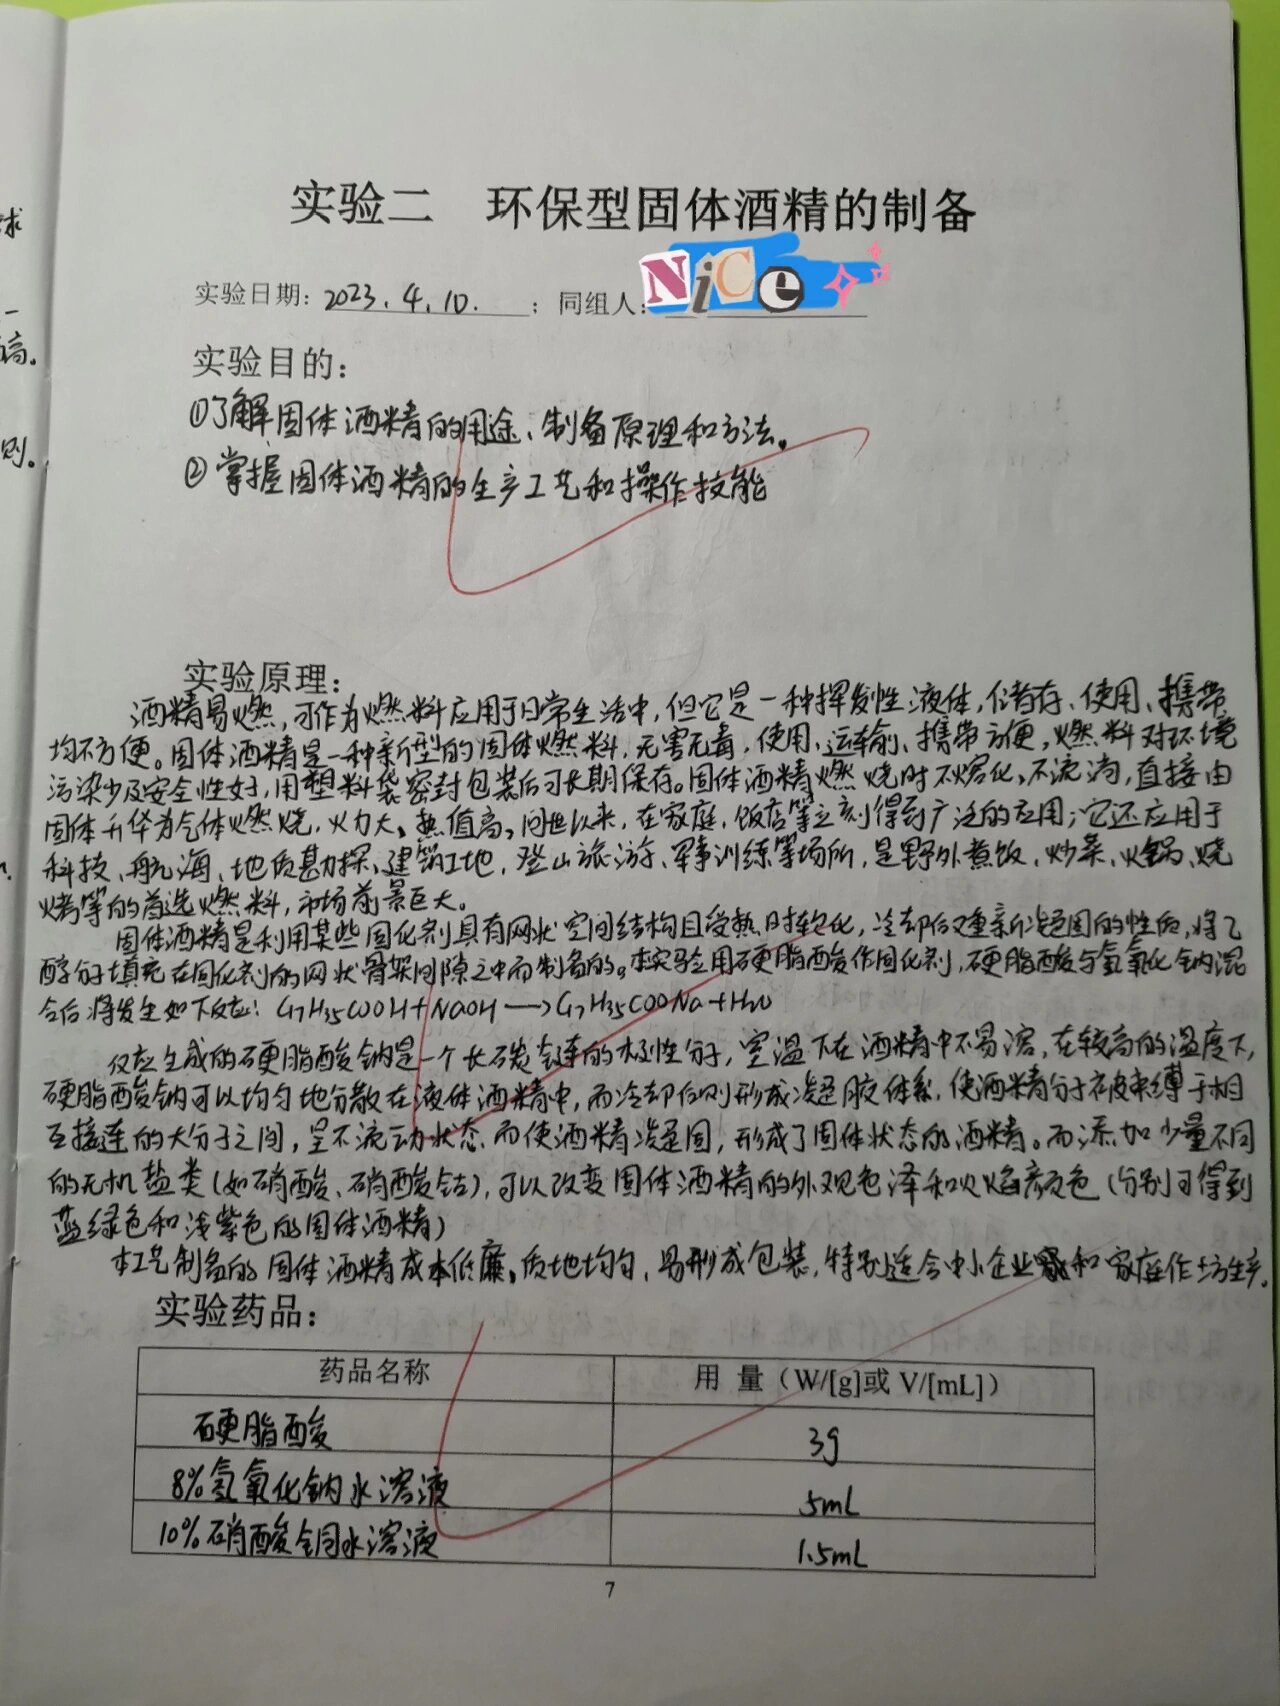 球
一
高。
则。
实验二 环保型固体酒精的制备
实验日期: 2023.4.10. ; 同组人: NiCe
实验目的:
①了解固体酒精的用途、制备原理和方法。
②掌握固体酒精的生产工艺和操作技能
实验原理:
酒精易燃,可作为燃料应用于日常生活中,但它是一种挥发性液体,储存、使用、携带
均不方便。固体酒精是一种新型的固体燃料,无害无毒,使用、运输、携带方便,燃料对环境
污染少及安全性好,用塑料袋密封包装后可长期保存。固体酒精燃烧时不熔化、不流淌,直接由
固体升华为气体燃烧,火力大、热值高,问世以来,在家庭、饭店等立刻得到广泛的应用;它还应用于
科技、航海、地质勘探、建筑工地,登山旅游、军事训练等场所,是野外煮饭,炒菜、火锅、烧
烤等的首选燃料,市场前景巨大。
固体酒精是利用某些固化剂具有网状空间结构且受热时软化,冷却后又重新凝固的性质,将乙
醇分子填充在固化剂的网状骨架间隙之中而制备的。本实验用硬脂酸作固化剂,硬脂酸与氢氧化钠混
合后将发生如下反应: C17H35COOH+NaOH→C17H35COONa+H2O
反应生成的硬脂酸钠是一个长碳链的极性分子,室温下在酒精中不易溶,在较高的温度下,
硬脂酸钠可以均匀地分散在液体酒精中,而冷却后则形成凝胶体系,使酒精分子被束缚于相
互接连的大分子之间,呈不流动状态而使酒精凝固,形成了固体状态的酒精。而添加少量不同
的无机盐类(如硝酸、硝酸钴),可以改变固体酒精的外观色泽和火焰颜色(分别可得到
蓝绿色和浅紫色的固体酒精)
本工艺制备的固体酒精成本低廉,质地均匀,易形成包装,特别适合中小企业和家庭作坊生产。
实验药品:
药品名称 用 量(W/[g]或 V/[mL])
硬脂酸 3g
8%氢氧化钠水溶液 5mL
10%硝酸铜水溶液 1.5mL
7